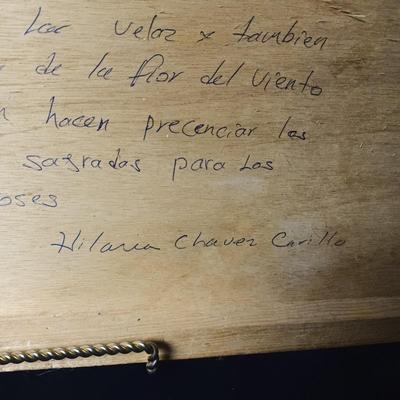 Las velas y también
de la flor del viento
n hacen precenciar las
sagradas para los
oses
Hilaria Chavez Carillo